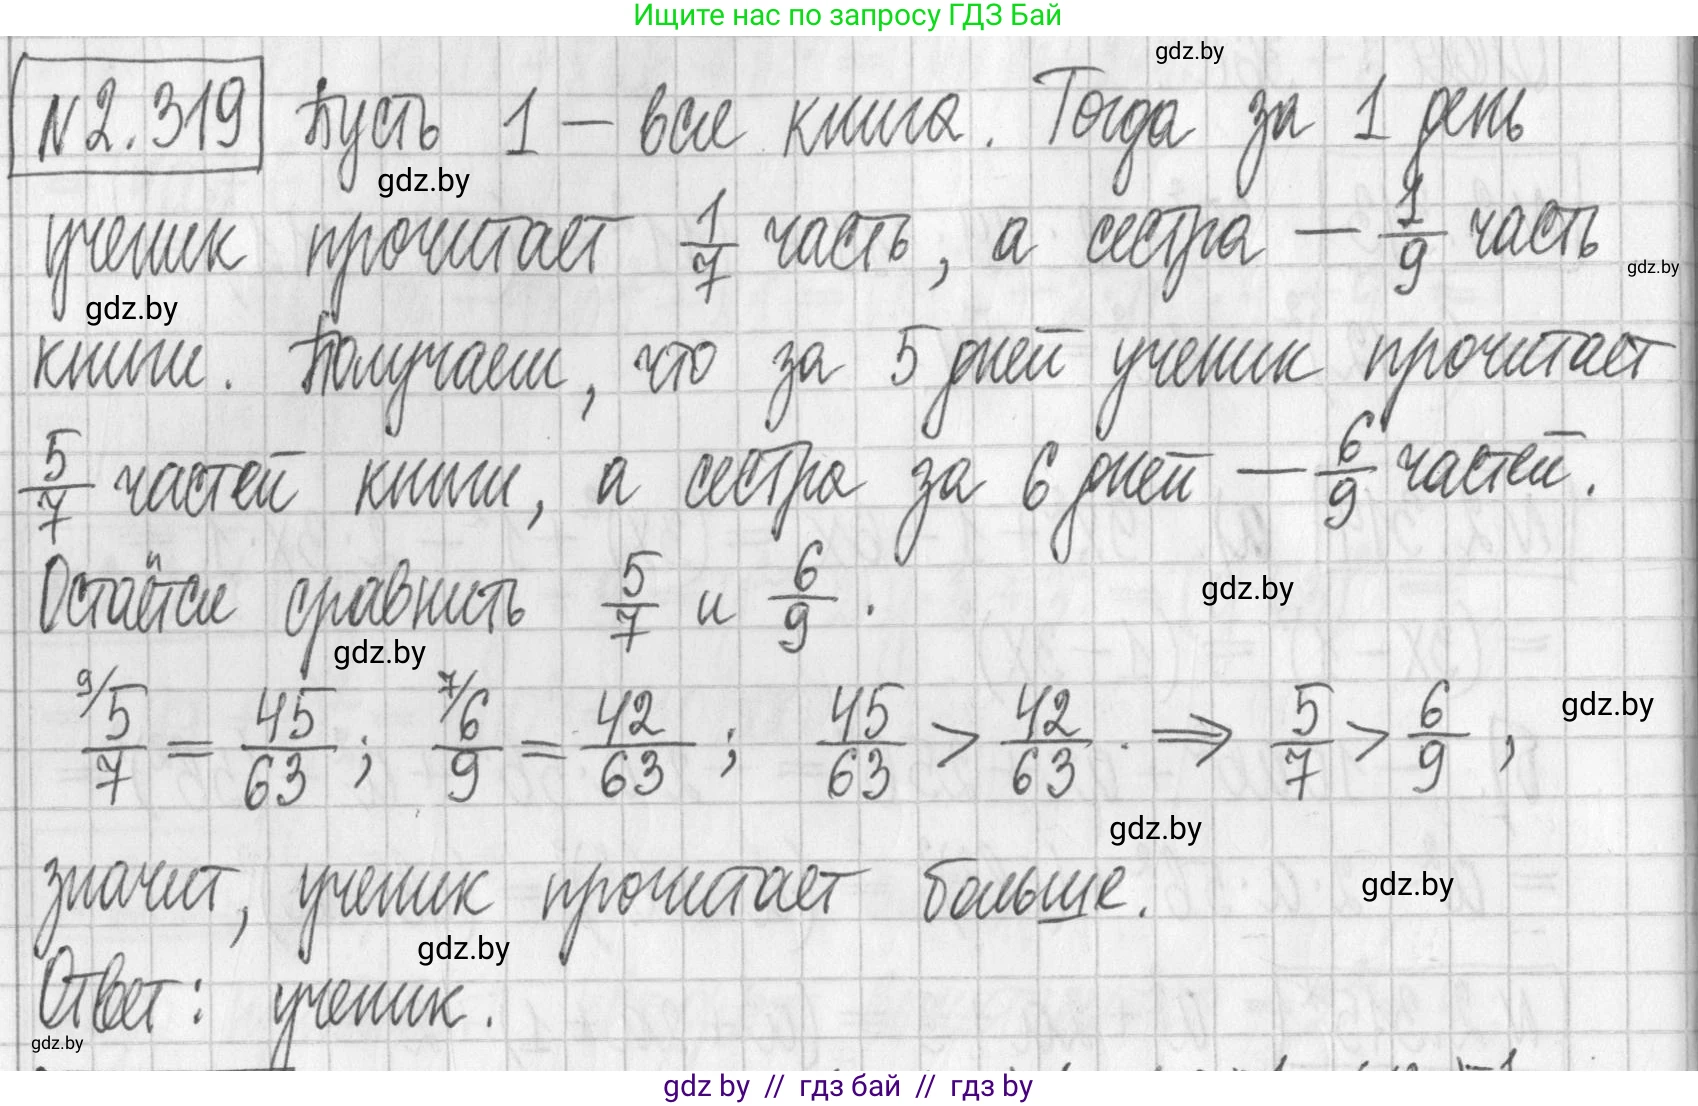 Ищите нас по запросу ГДЗ Бай
gdz.by
№2.319 Пусть 1 — вся книга. Тогда за 1 день
gdz.by
ученик прочитает 1/7 часть, а сестра — 1/9 часть
gdz.by
gdz.by
книги. Получаем, что за 5 дней ученик прочитает
5/7 частей книги, а сестра за 6 дней — 6/9 частей.
Остаётся сравнить 5/7 и 6/9.
gdz.by
gdz.by
9/ 5/7 = 45/63; 7/ 6/9 = 42/63; 45/63 > 42/63. ⇒ 5/7 > 6/9,
gdz.by
gdz.by
значит, ученик прочитает больше.
gdz.by
gdz.by
Ответ: ученик.
gdz.by
gdz by // гдз бай // гдз by